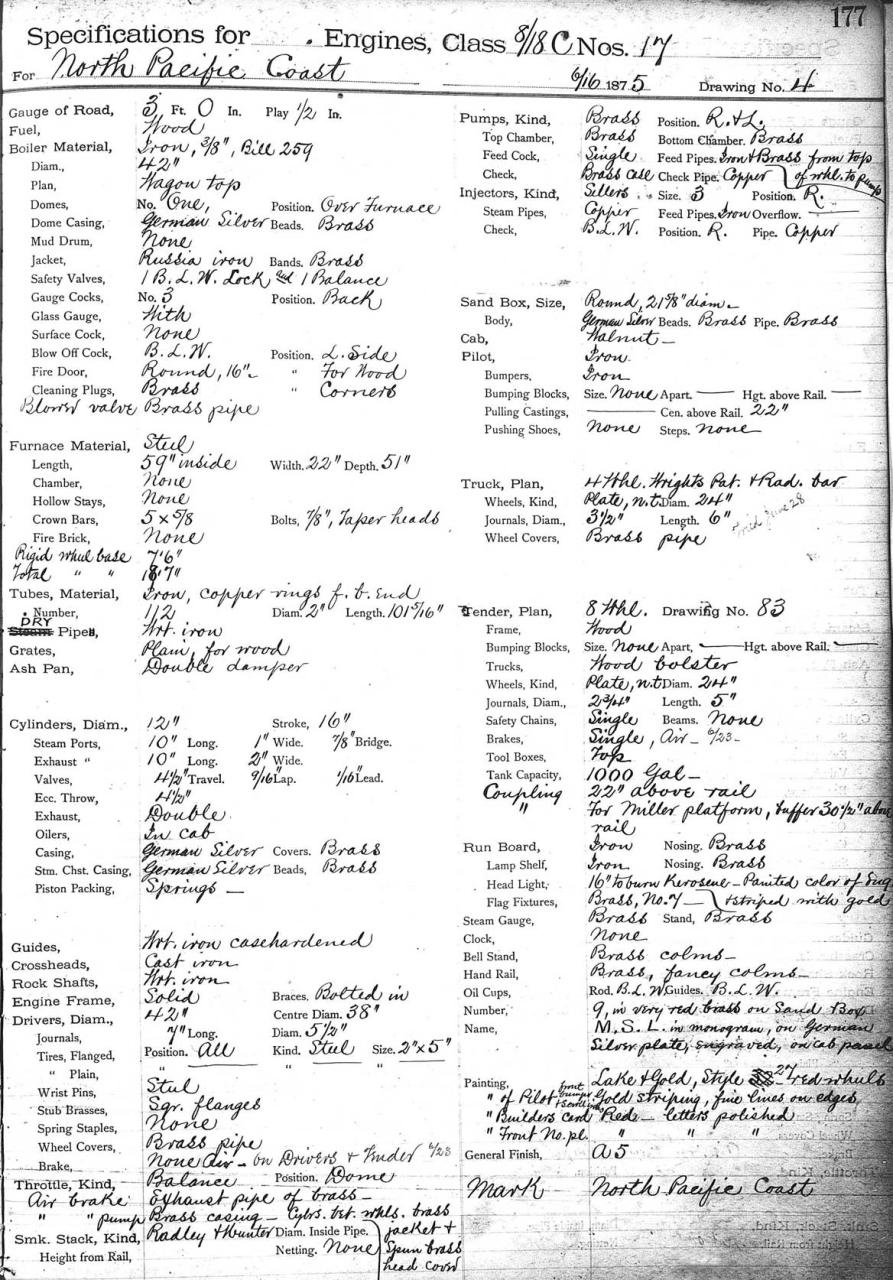 177
Specifications for . Engines, Class 8/18 C Nos. 17
For North Pacific Coast 6/16 1875 Drawing No. 4
Gauge of Road, 3 Ft. 0 In. Play 1/2 In.
Fuel, Wood
Boiler Material, Iron, 3/8", Bill 259
Diam., 42"
Plan, Wagon top
Domes, No. One, Position. Over Furnace
Dome Casing, German Silver Beads. Brass
Mud Drum, None
Jacket, Russia iron Bands. Brass
Safety Valves, 1 B.L.W. Lock and 1 Balance
Gauge Cocks, No. 3 Position. Back
Glass Gauge, With
Surface Cock, None
Blow Off Cock, B.L.W. Position. L. Side
Fire Door, Round, 16" " For Wood
Cleaning Plugs, Brass " Corners
Blower valve Brass pipe
Furnace Material, Steel
Length, 59" inside Width. 22" Depth. 51"
Chamber, None
Hollow Stays, None
Crown Bars, 5 x 5/8 Bolts, 7/8", Taper heads
Fire Brick, None
Rigid wheel base 7'6"
Total " " 18'7"
Tubes, Material, Iron, copper rings f. b. End
Number, 112 Diam. 2" Length. 101 5/16"
DRY
Steam Pipes, Wrt. iron
Grates, Plain, for wood
Ash Pan, Double damper
Cylinders, Diam., 12" Stroke, 16"
Steam Ports, 10" Long. 1" Wide. 7/8" Bridge.
Exhaust " 10" Long. 2" Wide.
Valves, 4 1/2" Travel. 9/16 Lap. 1/16 Lead.
Ecc. Throw, 4 1/2"
Exhaust, Double
Oilers, In cab
Casing, German Silver Covers. Brass
Stm. Chst. Casing, German Silver Beads, Brass
Piston Packing, Springs —
Guides, Wrt. iron casehardened
Crossheads, Cast iron
Rock Shafts, Wrt. iron
Engine Frame, Solid Braces. Bolted in
Drivers, Diam., 42" Centre Diam. 38"
Journals, 7" Long. Diam. 5 1/2"
Tires, Flanged, Position. All Kind. Steel Size. 2" x 5"
" Plain, " " "
Wrist Pins, Steel
Stub Brasses, Sqr. flanges
Spring Staples, None
Wheel Covers, Brass pipe
Brake, None Air – on Drivers & Tender 6/23
Throttle, Kind, Balance Position. Dome
Air brake Exhaust pipe of brass –
" " pump Brass casing – Cylrs. bet. whls. brass
Smk. Stack, Kind, Radley & Hunter Diam. Inside Pipe. jacket &
Height from Rail, Netting. None Spun brass
head cover
Pumps, Kind, Brass Position. R. & L.
Top Chamber, Brass Bottom Chamber. Brass
Feed Cock, Single Feed Pipes. Iron & Brass from top
Check, Brass case Check Pipe. Copper of whl. to pump
Injectors, Kind, Sellers Size. 3 Position. R.
Steam Pipes, Copper Feed Pipes. Iron Overflow. —
Check, B.L.W. Position. R. Pipe. Copper
Sand Box, Size, Round, 21 5/8" diam –
Body, German Silver Beads. Brass Pipe. Brass
Cab, Walnut –
Pilot, Iron
Bumpers, Iron
Bumping Blocks, Size. None Apart. — Hgt. above Rail. —
Pulling Castings, — Cen. above Rail. 22"
Pushing Shoes, None Steps. none —
Truck, Plan, 4 Whl. Wrights Pat. & Rad. bar
Wheels, Kind, Plate, n.t. Diam. 24"
Journals, Diam., 3 1/2" Length. 6"
June 28
Wheel Covers, Brass pipe
Tender, Plan, 8 Whl. Drawing No. 83
Frame, Wood
Bumping Blocks, Size. None Apart, — Hgt. above Rail. —
Trucks, Wood bolster
Wheels, Kind, Plate, n.t. Diam. 24"
Journals, Diam., 2 3/4" Length. 5"
Safety Chains, Single Beams. None
Brakes, Single, Air – 6/23 –
Tool Boxes, Top
Tank Capacity, 1000 Gal –
Coupling 22" above rail
" For Miller platform, buffer 30 1/2" above
rail
Run Board, Iron Nosing. Brass
Lamp Shelf, Iron Nosing. Brass
Head Light, 16" to burn Kerosene – Painted color of Eng
Flag Fixtures, Brass, No. 7 — & striped with gold
Steam Gauge, Brass Stand, Brass
Clock, None
Bell Stand, Brass colms –
Hand Rail, Brass, fancy colms –
Oil Cups, Rod. B.L.W. Guides. B.L.W.
Number, 9, in very red brass on Sand Box
Name, M.S.L. in monogram, on German
Silver plate, engraved, on cab panel
Painting, Lake & Gold, Style 27 – red wheels
" of Pilot front bumper Gold striping, fine lines on edges
" Builders card Red – letters polished
" Front No. pl. " " "
General Finish, A5
Mark North Pacific Coast